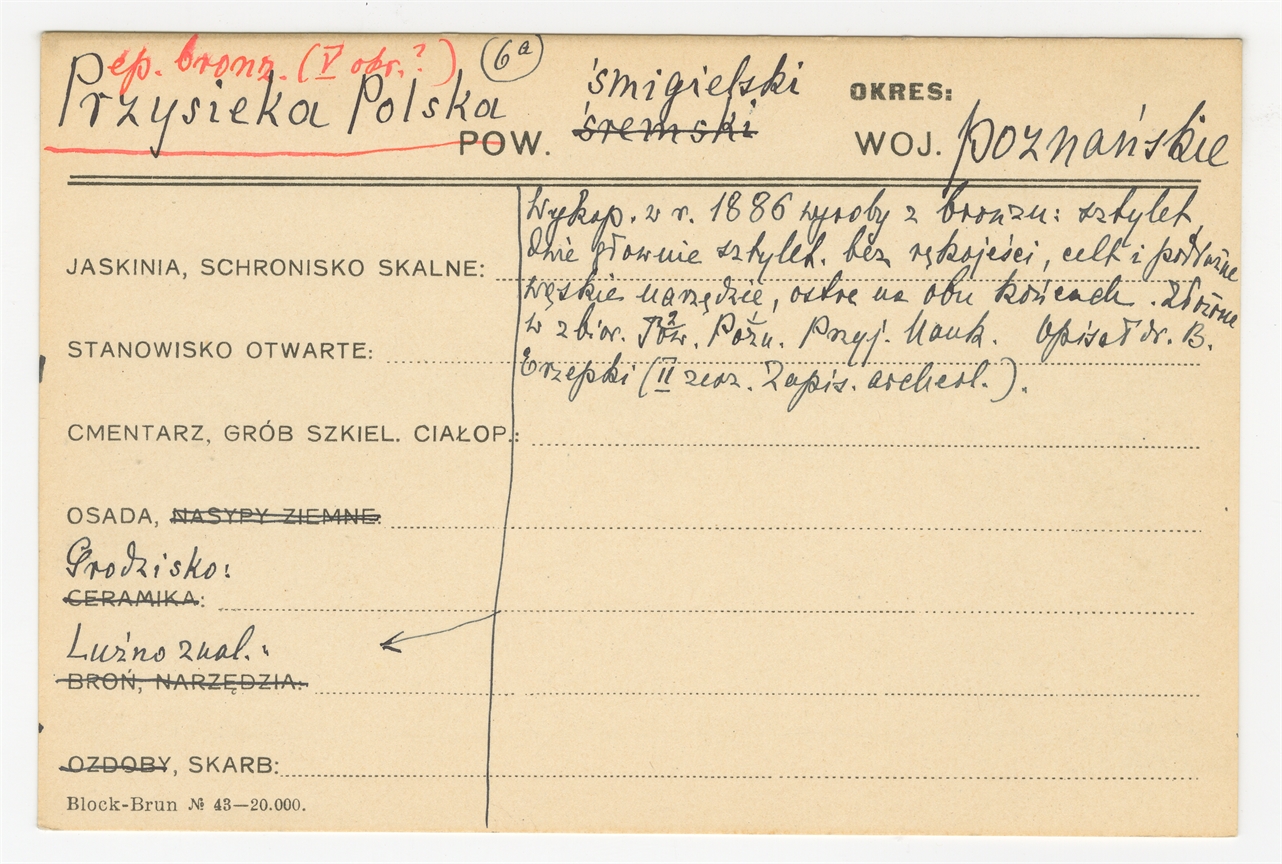 ep. bronz. (V okr.?) (6a)
Przysieka Polska
śmigielski
OKRES:
POW. śremski
WOJ. poznańskie
Wykop. w r. 1886 wyroby z bronzu: sztylet,
dwie głownie sztylet. bez rękojeści, celt i podłużne
JASKINIA, SCHRONISKO SKALNE:
wąskie narzędzie, ostre na obu końcach. Złożone
w zbior. Tow. Pozn. Przyj. Nauk. Opisał dr. B.
2 1
STANOWISKO OTWARTE:
Erzepki (II zesz. Zapis. archeol.).
CMENTARZ, GRÓB SZKIEL. CIAŁOP.:
OSADA, NASYPY ZIEMNE:
Grodzisko:
CERAMIKA:
Luźno znal.:
BROŃ, NARZĘDZIA:
OZDOBY, SKARB:
Block-Brun № 43—20.000.